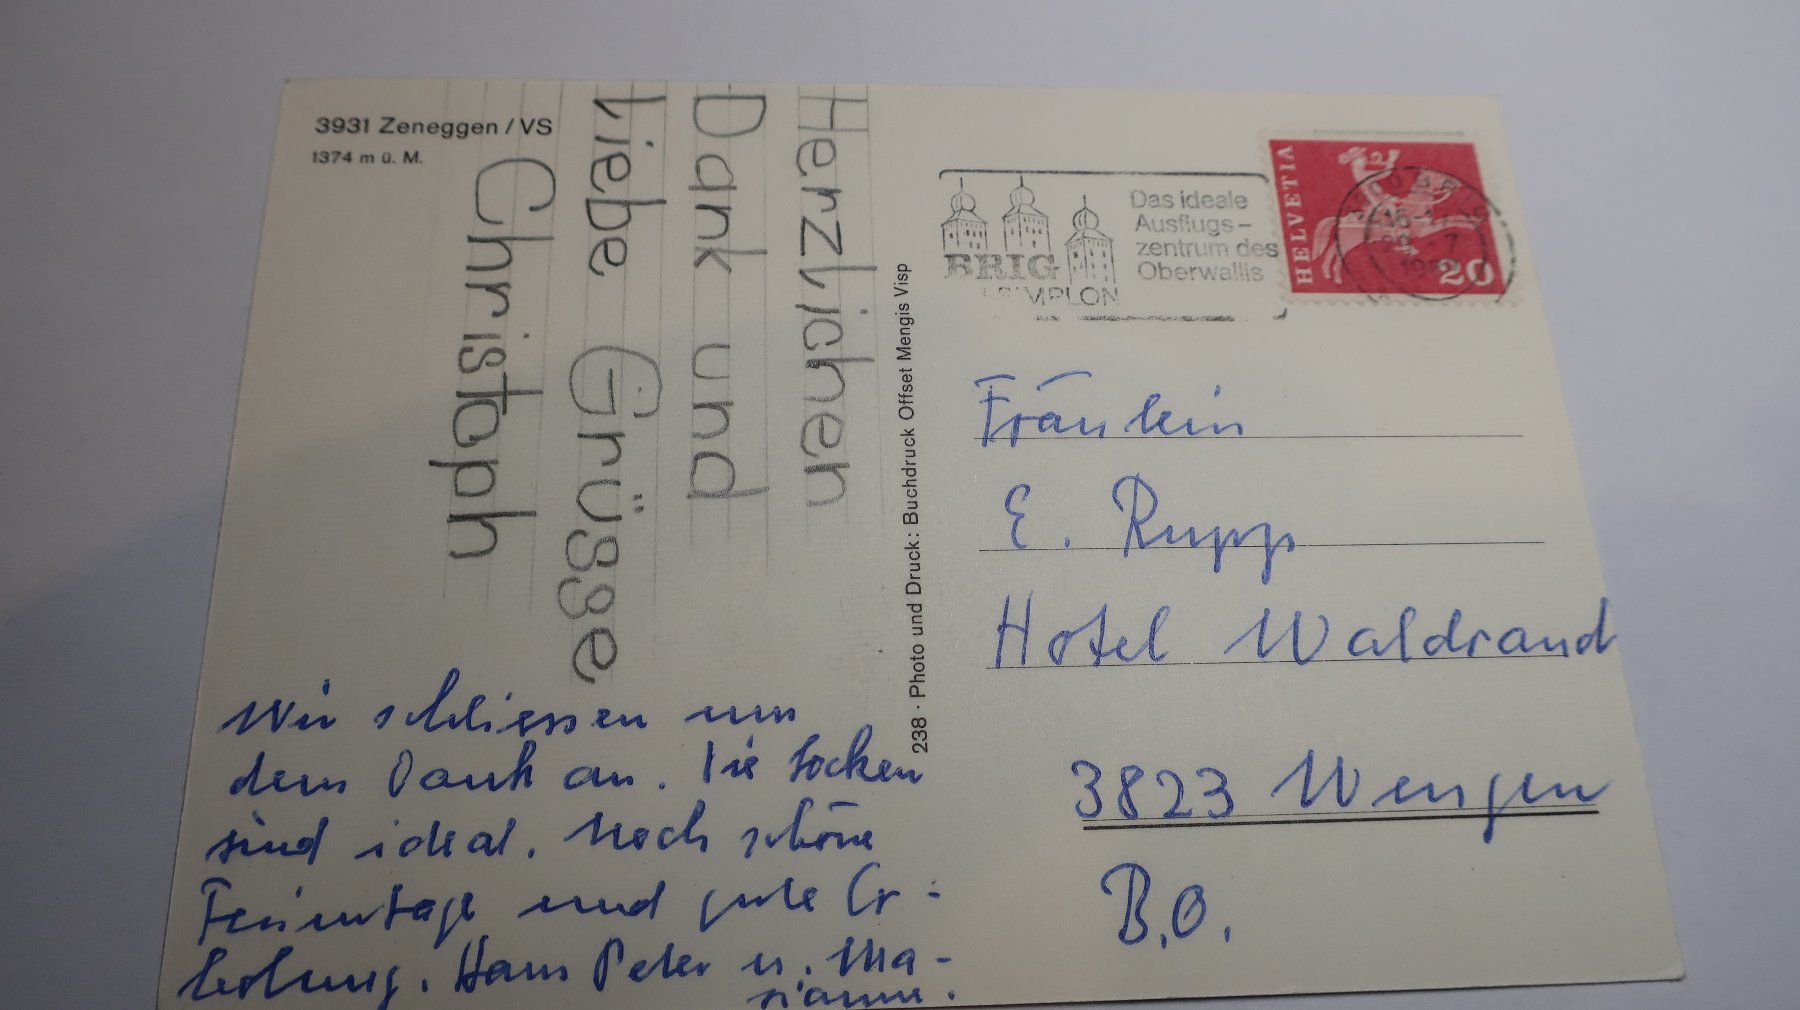 3931 Zeneggen / VS
1374 m ü. M.
Herzlichen
Dank und
Liebe Grügge
Christoph
Wir schliessen uns
dem Dank an. Die Socken
sind ideal. Noch schöne
Ferientage und gute Er-
holung. Hans Peter u. Ma-
rianne.
238 · Photo und Druck: Buchdruck Offset Mengis Visp
Das ideale
Ausflugs-
zentrum des
Oberwallis
BRIG
SIMPLON
HELVETIA
20
Fräulein
E. Rupp
Hotel Waldrand
3823 Wengen
B.O.